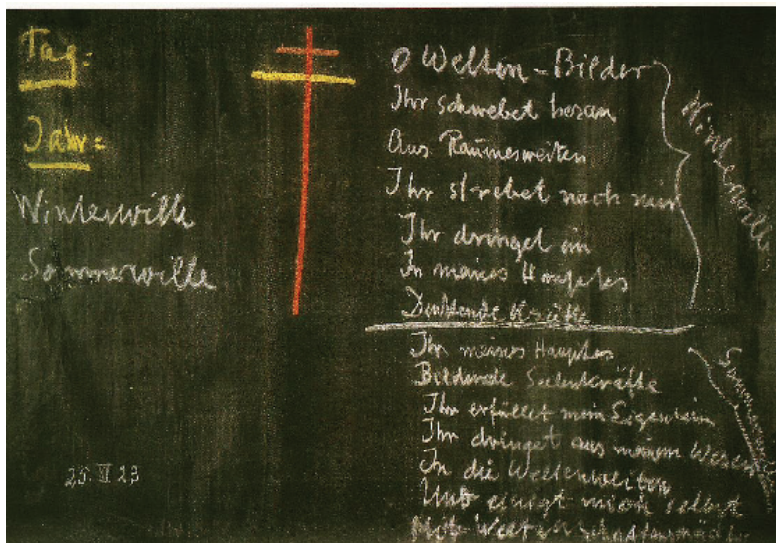 Tag =
Jahr =
Winterwille
Sommerwille
O Welten-Bilder
Ihr schwebet heran
Aus Raumesweiten
Ihr strebet nach mir
Ihr dringet ein
In meines Hauptes
Denkende Kräfte
Winterwille
Ihr meines Hauptes
Bildende Seelenkräfte
Ihr erfüllet mein Eigensein
Ihr dringet aus meinem Wesen
In die Weltenweiten
Und einigt mich selbst
Mit